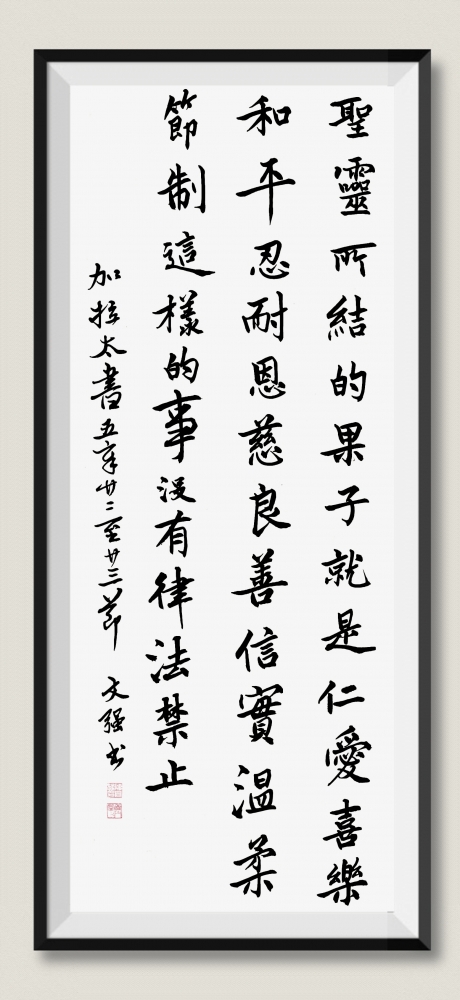 聖靈所結的果子就是仁愛喜樂
和平忍耐恩慈良善信實溫柔
節制這樣的事沒有律法禁止
加拉太書五章廿二至廿三節 文强书